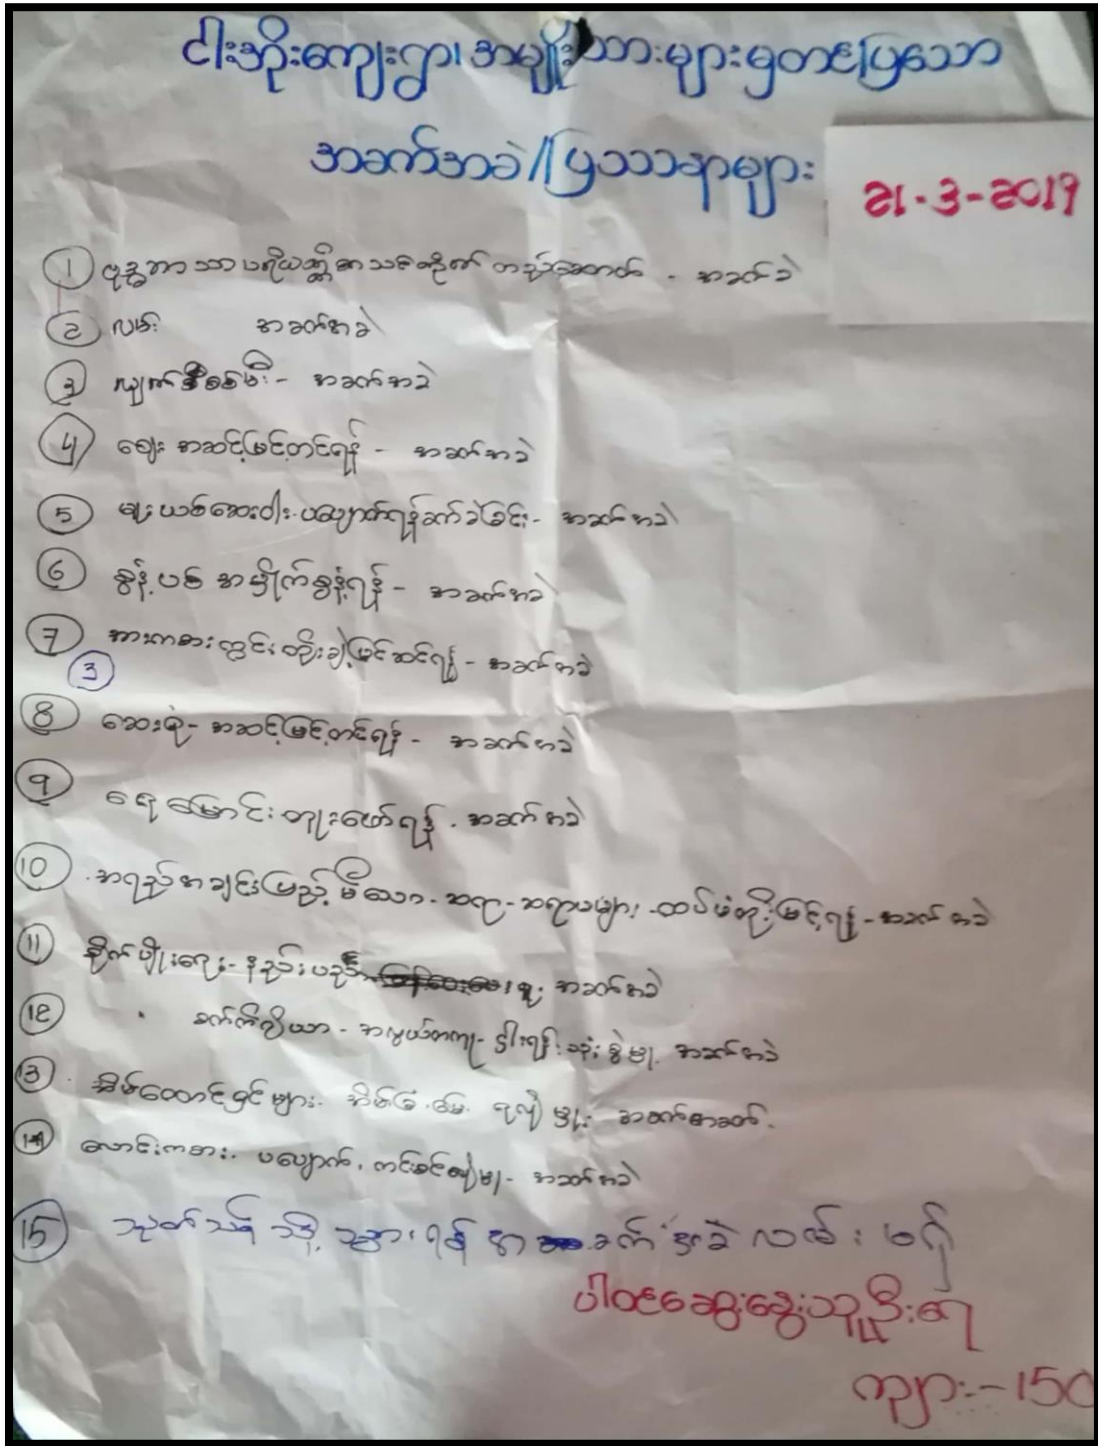 ငါးအိုးကျေးရွာ၊ အမျိုးသားများမှတင်ပြသော
အခက်အခဲ/ပြဿနာများ
21-3-2019
① ဗုဒ္ဓဘာသာပရိယတ္တိစာသင်တိုက် တည်ဆောက် - အခက်ခဲ
② လမ်း အခက်အခဲ
③ လျှက်စစ်မီး - အခက်အခဲ
④ ဈေး အဆင့်မြင့်တင်ရန် - အခက်အခဲ
⑤ မူးယစ်ဆေးဝါး ပပျောက်ရန်ခက်ခဲခြင်း - အခက်အခဲ
⑥ စွန့်ပစ် အမှိုက်စွန့်ရန် - အခက်အခဲ
⑦ အားကစားကွင်း တိုးချဲ့မြင်ဆင်ရန် - အခက်အခဲ
③
⑧ ဆေးရုံ - အဆင့်မြင့်တင်ရန် - အခက်အခဲ
⑨ ရေမြောင်းတူးဖော်ရန် . အခက်အခဲ
⑩ အရည်အချင်းပြည့်မီသော - ဆရာ - ဆရာမများ - ထပ်မံတိုးမြင့်ရန် - အခက်အခဲ
⑪ စိုက်ပျိုးရေး - နည်းပညာ အခက်အခဲ
⑫ စက်ကိရိယာ - အလွယ်တကူ - ငှါးရန်း သုံးစွဲမှု . အခက်အခဲ
⑬ အိမ်ထောင်ရှင်များ . အိမ်ခြံ . မြေ . ရလို မှု . အခက်အခက် .
⑭ လောင်းကစား . ပပျောက် . ကင်းစင်ရေးမှု - အခက်အခဲ
⑮ သုတ်သန် သို့ သွားရန် အခက်အခဲ လမ်း မရှိ
ပါဝင်ဆွေးနွေးသူဦးရေ
ကျား - 150